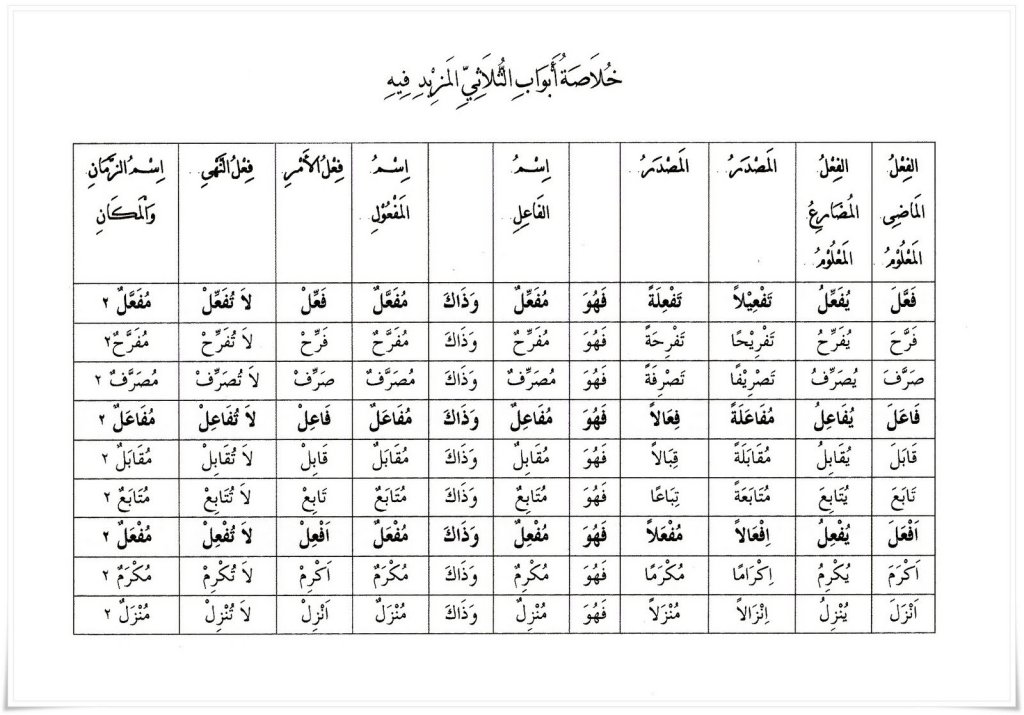 خُلَاصَةُ أَبْوَابِ الثُّلَاثِيِّ المَزِيْدِ فِيهِ
الفِعْلُ المَاضِى المَعْلُوْمُ | الفِعْلُ المُضَارِعُ المَعْلُوْمُ | المَصْدَرُ | المَصْدَرُ | | اِسْمُ الفَاعِلِ | | اِسْمُ المَفْعُوْلِ | فِعْلُ الأَمْرِ | فِعْلُ النَّهْىِ | اِسْمُ الزَّمَانِ وَالْمَكَانِ
فَعَّلَ | يُفَعِّلُ | تَفْعِيْلاً | تَفْعِلَةً | فَهُوَ | مُفَعِّلٌ | وَذَاكَ | مُفَعَّلٌ | فَعِّلْ | لاَ تُفَعِّلْ | مُفَعَّلٌ ٢
فَرَّحَ | يُفَرِّحُ | تَفْرِيْحًا | تَفْرِحَةً | فَهُوَ | مُفَرِّحٌ | وَذَاكَ | مُفَرَّحٌ | فَرِّحْ | لاَ تُفَرِّحْ | مُفَرَّحٌ ٢
صَرَّفَ | يُصَرِّفُ | تَصْرِيْفًا | تَصْرِفَةً | فَهُوَ | مُصَرِّفٌ | وَذَاكَ | مُصَرَّفٌ | صَرِّفْ | لاَ تُصَرِّفْ | مُصَرَّفٌ ٢
فَاعَلَ | يُفَاعِلُ | مُفَاعَلَةً | فِعَالاً | فَهُوَ | مُفَاعِلٌ | وَذَاكَ | مُفَاعَلٌ | فَاعِلْ | لاَ تُفَاعِلْ | مُفَاعَلٌ ٢
قَابَلَ | يُقَابِلُ | مُقَابَلَةً | قِبَالاً | فَهُوَ | مُقَابِلٌ | وَذَاكَ | مُقَابَلٌ | قَابِلْ | لاَ تُقَابِلْ | مُقَابَلٌ ٢
تَابَعَ | يُتَابِعَ | مُتَابَعَةً | تِبَاعًا | فَهُوَ | مُتَابِعٌ | وَذَاكَ | مُتَابَعٌ | تَابِعْ | لاَ تُتَابِعْ | مُتَابَعٌ ٢
اَفْعَلَ | يُفْعِلُ | اِفْعَالاً | مُفْعَلاً | فَهُوَ | مُفْعِلٌ | وَذَاكَ | مُفْعَلٌ | اَفْعِلْ | لاَ تُفْعِلْ | مُفْعَلٌ ٢
اَكْرَمَ | يُكْرِمُ | اِكْرَامًا | مُكْرَمًا | فَهُوَ | مُكْرِمٌ | وَذَاكَ | مُكْرَمٌ | اَكْرِمْ | لاَ تُكْرِمْ | مُكْرَمٌ ٢
اَنْزَلَ | يُنْزِلُ | اِنْزَالاً | مُنْزَلاً | فَهُوَ | مُنْزِلٌ | وَذَاكَ | مُنْزَلٌ | اَنْزِلْ | لاَ تُنْزِلْ | مُنْزَلٌ ٢